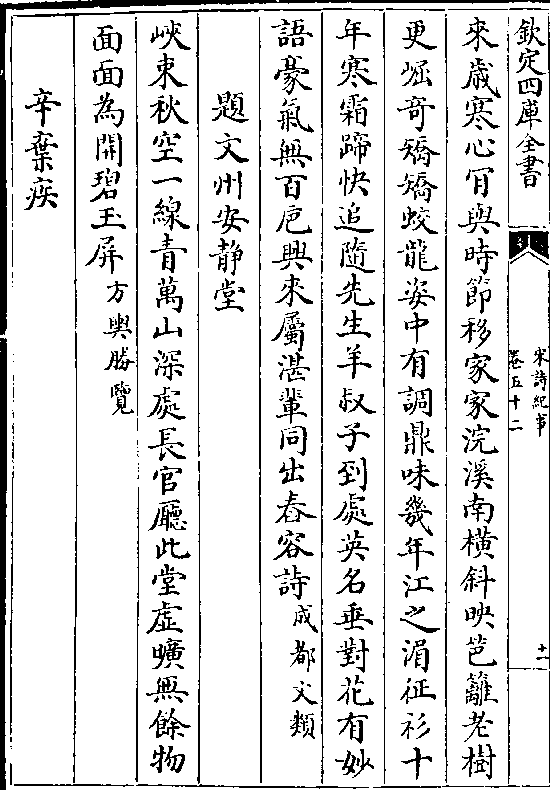 欽定四庫全書
宋詩紀事
卷五十二
十一
來歳寒心肎與時節移家家浣溪南橫斜映笆籬老樹
更崛竒矯矯蛟龍姿中有調鼎味幾年江之湄征衫十
年寒霜蹄快追隨先生羊叔子到處英名垂對花有妙
語豪氣無百巵興來屬湛輩同出春容詩成都文類
題文州安靜堂
峽束秋空一線青萬山深處長官廳此堂虛曠無餘物
面面為開碧玉屏方輿勝覽
辛棄疾